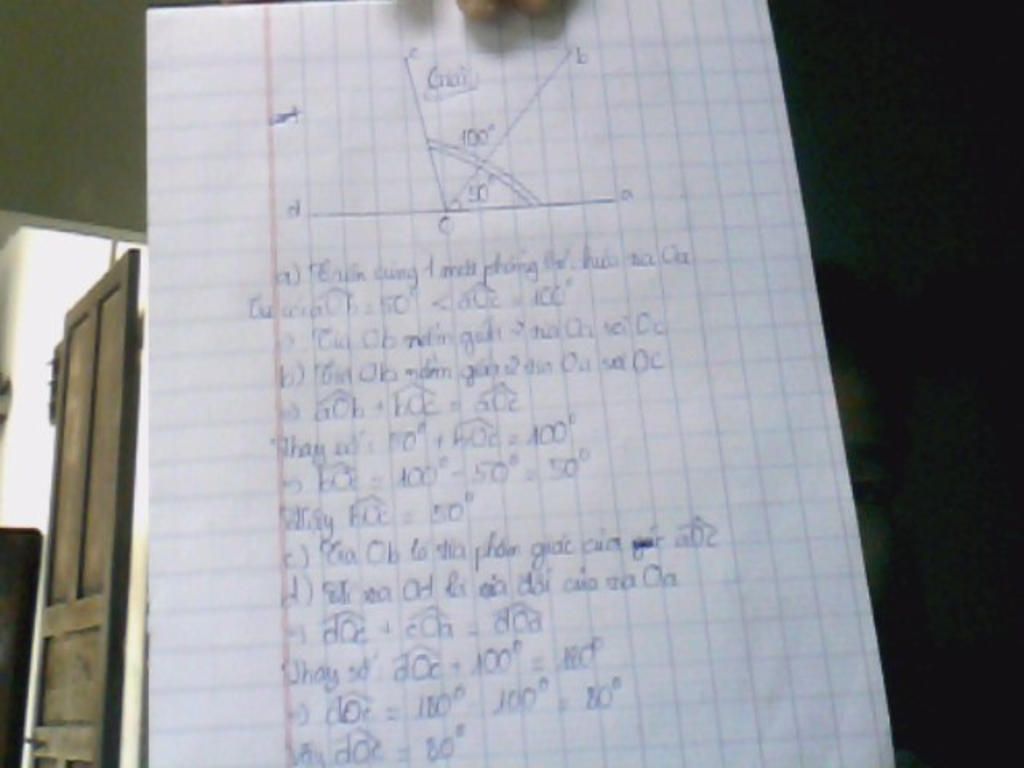 Giải
c
b
100°
50°
d
a
O
a) Trên cùng 1 nửa mặt phẳng bờ chứa tia Oa
Ta có: aOb = 50° < aOc = 100°
=> Tia Ob nằm giữa 2 tia Oa với Oc
b) Tia Ob nằm giữa 2 tia Oa với Oc
=> aOb + bOc = aOc
Thay số: 50° + bOc = 100°
=> bOc = 100° - 50° = 50°
Vậy bOc = 50°
c) Tia Ob là tia phân giác của góc aOc
d) Vì tia Od là tia đối của tia Oa
=> dOc + cOa = dOa
Thay số: dOc + 100° = 180°
=> dOc = 180° - 100° = 80°
Vậy dOc = 80°